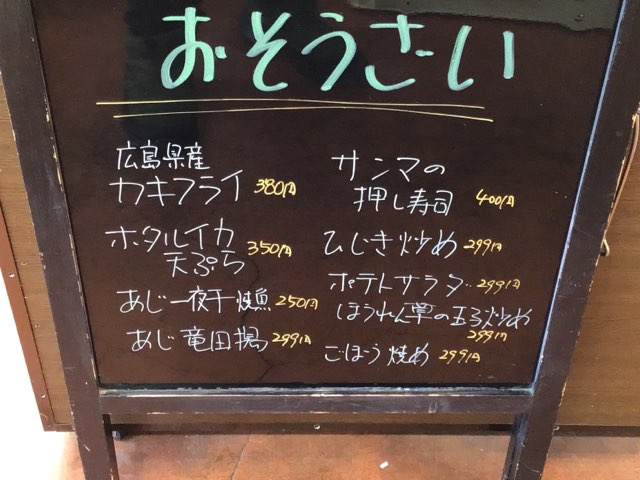 おそうざい
広島県産
カキフライ 380円
ホタルイカ
天ぷら 350円
あじ一夜干焼魚 250円
あじ竜田揚 299円
サンマの
押し寿司 400円
ひじき炒め 299円
ポテトサラダ 299円
ほうれん草の玉子炒め
299円
ごぼう焼め 299円